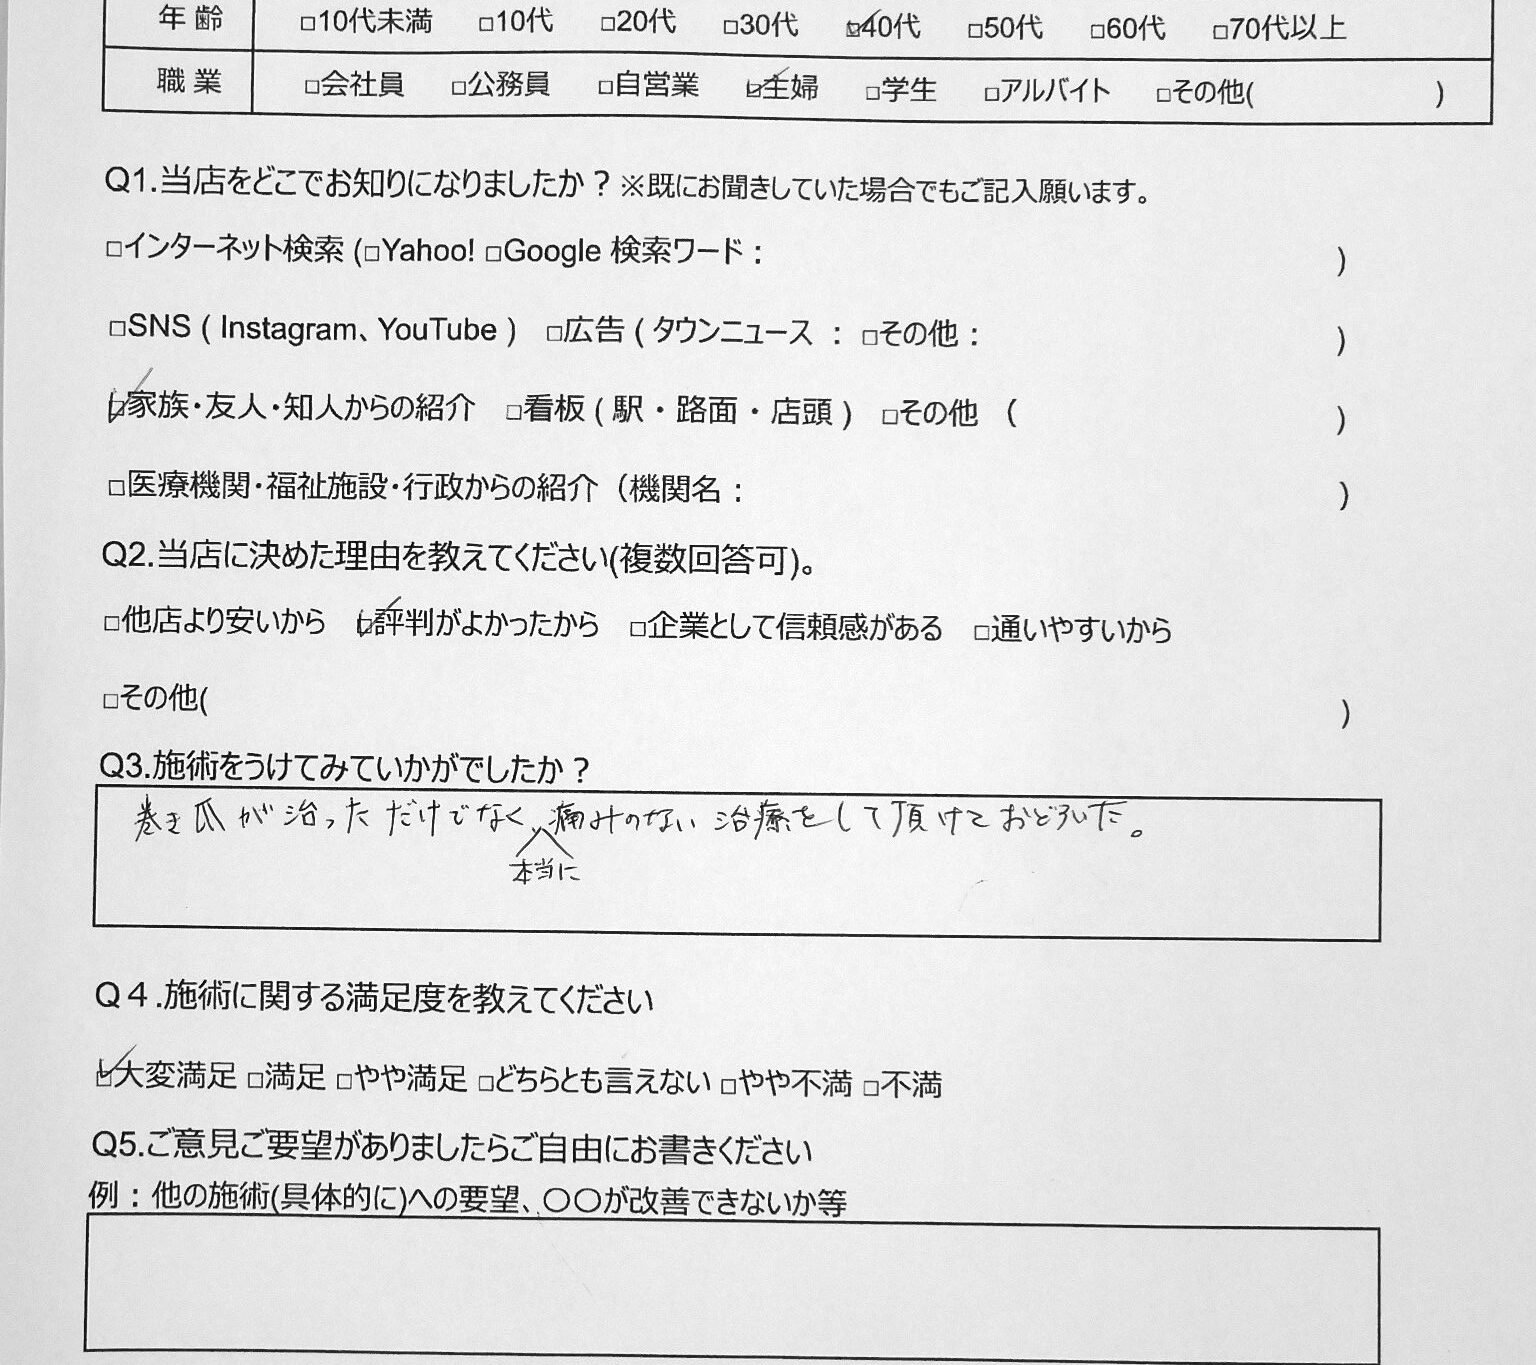 年齢 □10代未満 □10代 □20代 □30代 ☑40代 □50代 □60代 □70代以上
職業 □会社員 □公務員 □自営業 ☑主婦 □学生 □アルバイト □その他( )
Q1.当店をどこでお知りになりましたか？※既にお聞きしていた場合でもご記入願います。
□インターネット検索 (□Yahoo! □Google 検索ワード： )
□SNS ( Instagram、YouTube ) □広告 ( タウンニュース ： □その他： )
☑家族・友人・知人からの紹介 □看板 ( 駅 ・ 路面 ・ 店頭 ) □その他 ( )
□医療機関・福祉施設・行政からの紹介（機関名： )
Q2.当店に決めた理由を教えてください(複数回答可)。
□他店より安いから ☑評判がよかったから □企業として信頼感がある □通いやすいから
□その他( )
Q3.施術をうけてみていかがでしたか？
巻き爪が治っただけでなく、痛みのない治療をして頂けておどろいた。
本当に
Q４.施術に関する満足度を教えてください
☑大変満足 □満足 □やや満足 □どちらとも言えない □やや不満 □不満
Q5.ご意見ご要望がありましたらご自由にお書きください
例：他の施術(具体的に)への要望、〇〇が改善できないか等